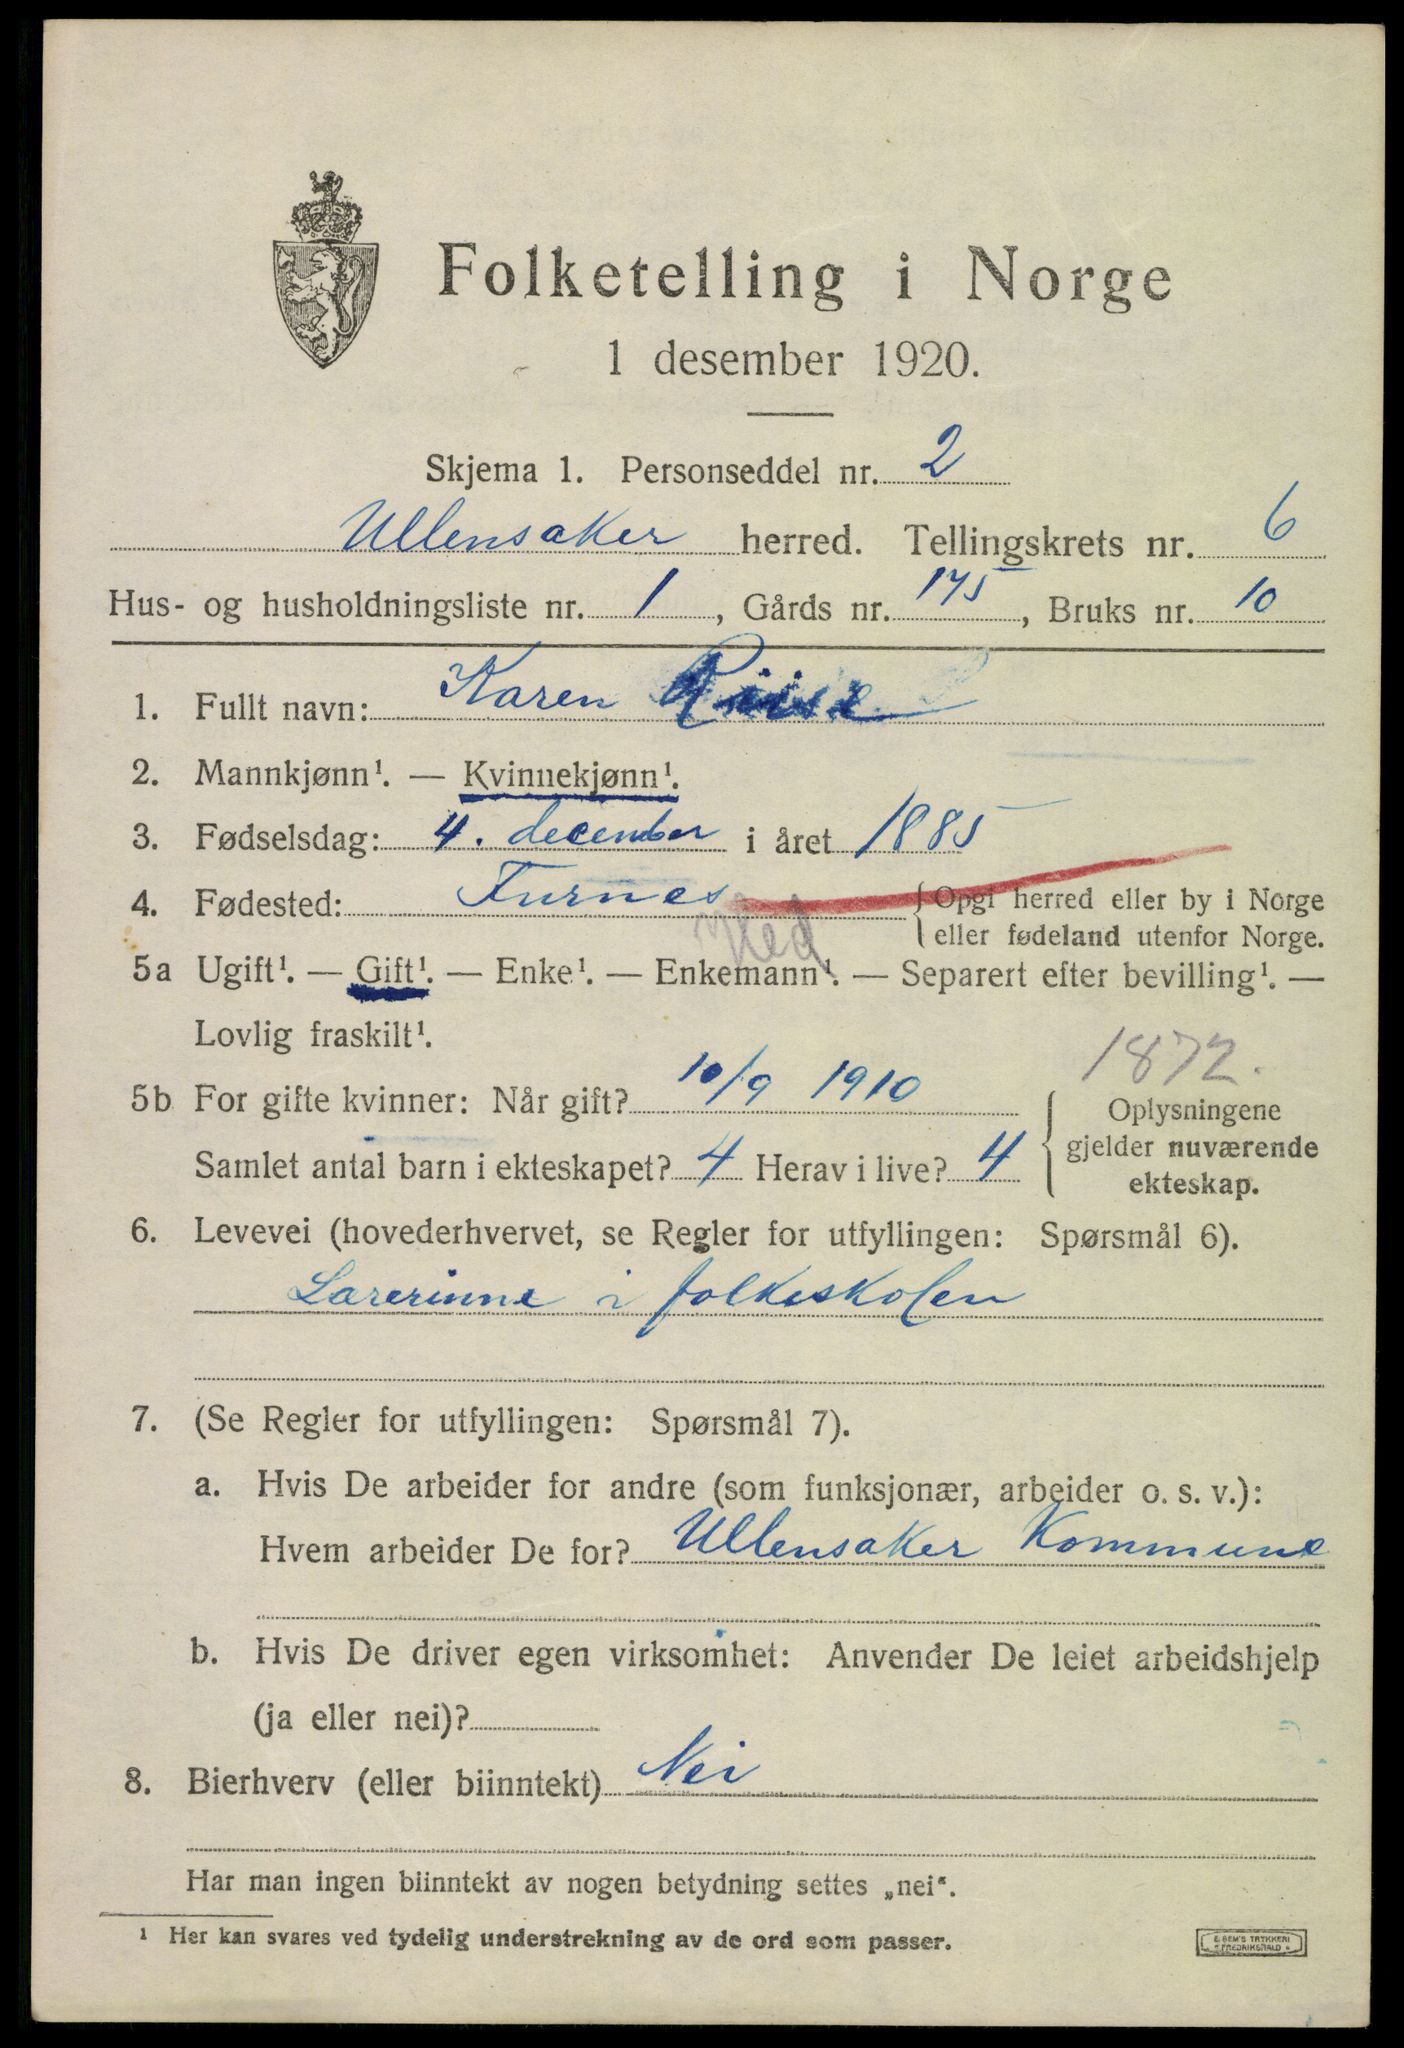 Folketelling i Norge
1 desember 1920.
Skjema 1. Personseddel nr. 2
Ullensaker herred. Tellingskrets nr. 6
Hus- og husholdningsliste nr. 1, Gårds nr. 175, Bruks nr. 10
1. Fullt navn: Karen Riise
2. Mannkjønn¹. — Kvinnekjønn¹.
3. Fødselsdag: 4. december i året 1885
4. Fødested: Furnes { Opgi herred eller by i Norge
eller fødeland utenfor Norge.
Hed
5a Ugift¹. — Gift¹. — Enke¹. — Enkemann¹. — Separert efter bevilling¹. —
Lovlig fraskilt¹.
1872.
5b For gifte kvinner: Når gift? 10/9 1910
Samlet antal barn i ekteskapet? 4 Herav i live? 4
{ Oplysningene
gjelder nuværende
ekteskap.
6. Levevei (hovederhvervet, se Regler for utfyllingen: Spørsmål 6).
Lærerinne i folkeskolen
7. (Se Regler for utfyllingen: Spørsmål 7).
a. Hvis De arbeider for andre (som funksjonær, arbeider o. s. v.):
Hvem arbeider De for? Ullensaker Kommune
b. Hvis De driver egen virksomhet: Anvender De leiet arbeidshjelp
(ja eller nei)?
8. Bierhverv (eller biinntekt) Nei
Har man ingen biinntekt av nogen betydning settes „nei“.
¹ Her kan svares ved tydelig understrekning av de ord som passer.
E SEM'S TRYKKERI
FREDRIKSHALD